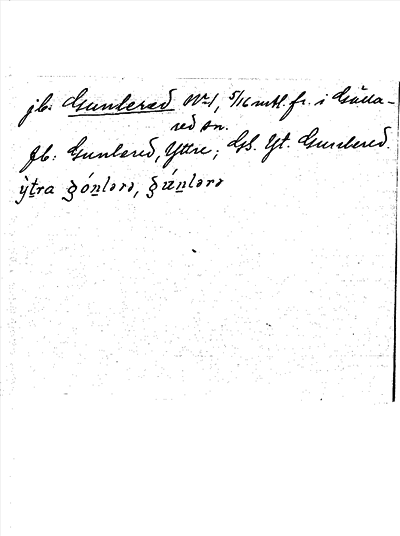 jb: Gunlered Nr 1, 5/16 mtl. fr. i Gälla-
red sn.
Jb: Gunlered, Yttre; GS. Yt. Gunlered.
ỳt̲ra ʒón̲lərə, ʒún̲lərə